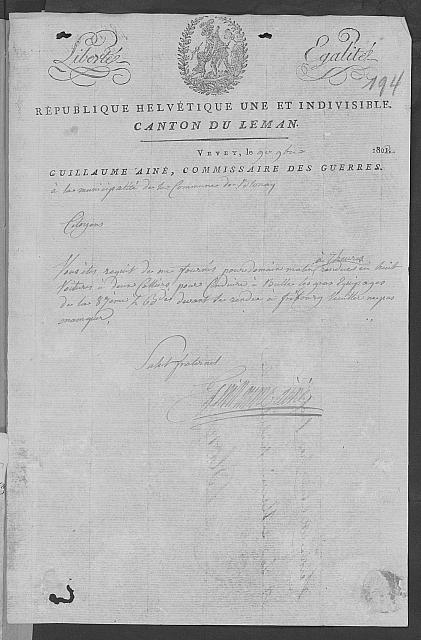 Liberté Egalité
194
RÉPUBLIQUE HELVÉTIQUE UNE ET INDIVISIBLE.
CANTON DU LEMAN.
VEVEY, le 9bre 1801.
GUILLAUME AINÉ, COMMISSAIRE DES GUERRES.
à la municipalité de la Commune de Blonay
Citoyens
à 7 heures
Vous êtes requit de me fournir pour demain matin rendues en
Voitures à deux Colliers pour Conduire à Bulle les gros Equipages
de la devant se rendre à fribourg veuillez ne pas
manquer.
Salut fraternel
Guillaume ainé